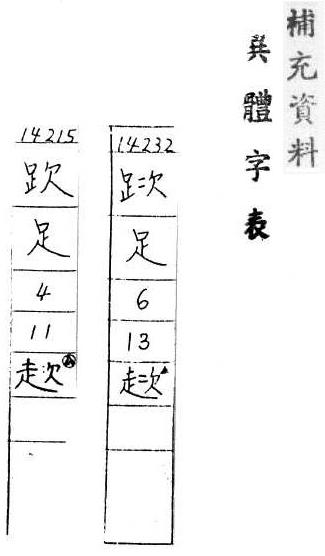 補充資料
異體字表
14232
足
6
13
趑
14215
足
4
11
赼